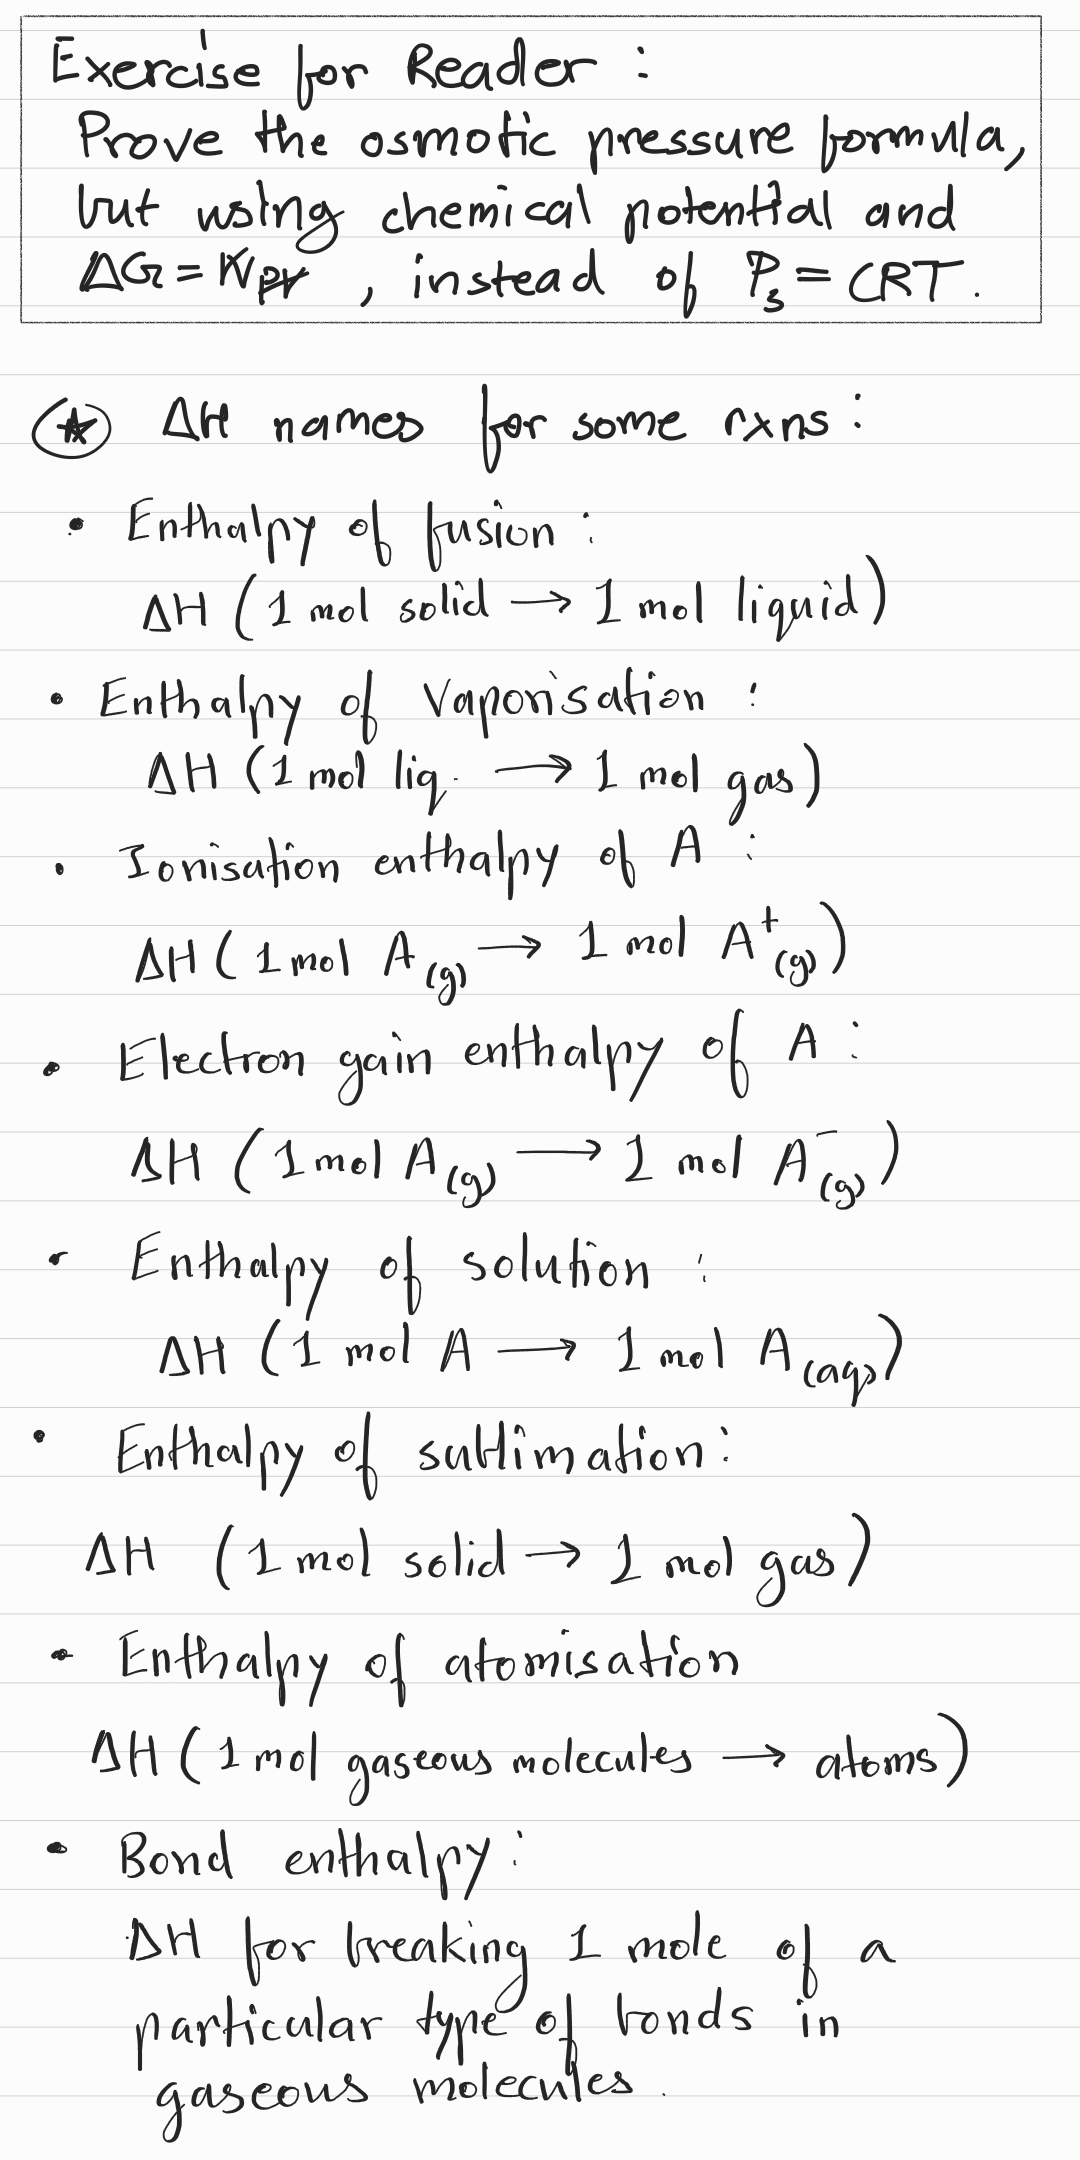 Exercise for Reader :
Prove the osmotic pressure formula,
but using chemical potential and
ΔG = W , instead of Pₛ = CRT .
ΔH names for some rxns :
• Enthalpy of fusion :
ΔH ( 1 mol solid → 1 mol liquid )
• Enthalpy of Vaporisation :
ΔH ( 1 mol liq. → 1 mol gas )
• Ionisation enthalpy of A :
ΔH ( 1 mol A(g) → 1 mol A⁺(g) )
• Electron gain enthalpy of A :
ΔH ( 1 mol A(g) → 1 mol A⁻(g) )
• Enthalpy of solution :
ΔH ( 1 mol A → 1 mol A(aq) )
• Enthalpy of sublimation :
ΔH ( 1 mol solid → 1 mol gas )
• Enthalpy of atomisation
ΔH ( 1 mol gaseous molecules → atoms )
• Bond enthalpy :
ΔH for breaking 1 mole of a
particular type of bonds in
gaseous molecules .